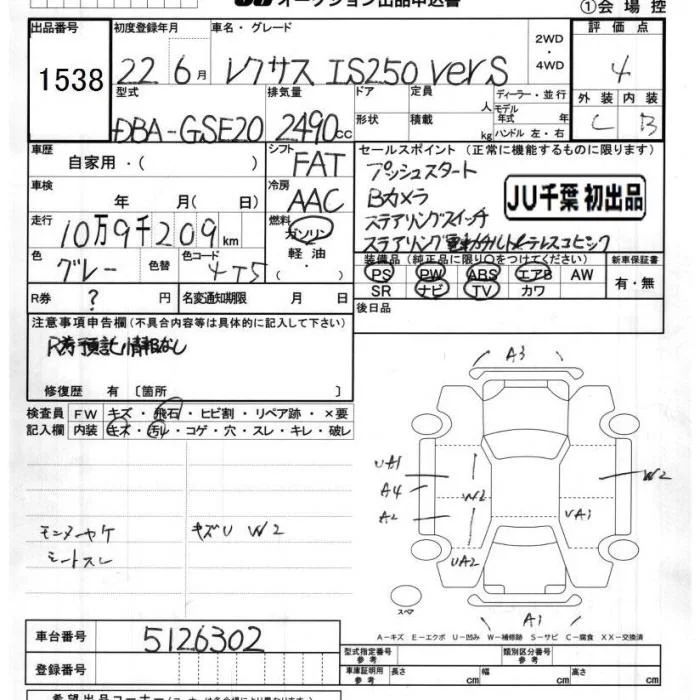 オークション出品申込書 ①会場控
出品番号 初度登録年月 車名・グレード 2WD・4WD 評価点
1538 22 6月 レクサス IS250 verS 4
型式 排気量 ドア 定員 ディーラー・並行 外装 内装
DBA-GSE20 2490cc 形状 積載 人 kg モデル年式 年 ハンドル 左・右 C B
車歴 自家用・( )
シフト FAT
セールスポイント (正常に機能するものに限ります)
プッシュスタート
Bカメラ
ステアリングスイッチ
JU千葉 初出品
車検 年 月( 日)
冷房 AAC
走行 10万9千209km
燃料 ガソリン 軽油・( )
色 グレー 色替 色コード 4T5
装備品 (純正品に限り○をつけてください) 新車保証書
PS PW ABS エアB AW 有・無
SR ナビ TV カワ
R券 ? 円 名変通知期限 月 日
後日品
注意事項申告欄 (不具合内容等は具体的に記入して下さい)
修復歴 有 〔箇所 〕
検査員 FW キズ・飛石・ヒビ割・リペア跡・×要
記入欄 内装 キズ・汚レ・コゲ・穴・スレ・キレ・破レ
モニターヤケ キズU W2
シートスレ
A3
UA1
A4 W2 W2
A2 UA1
UA2
スペア A1
A-キズ E-エクボ U-凹み W-補修跡 S-サビ C-腐食 XX-交換済
車台番号 5126302
型式指定番号 参考 類別区分番号 参考
登録番号
車庫証明用 参考 長さ cm 幅 cm 高さ cm